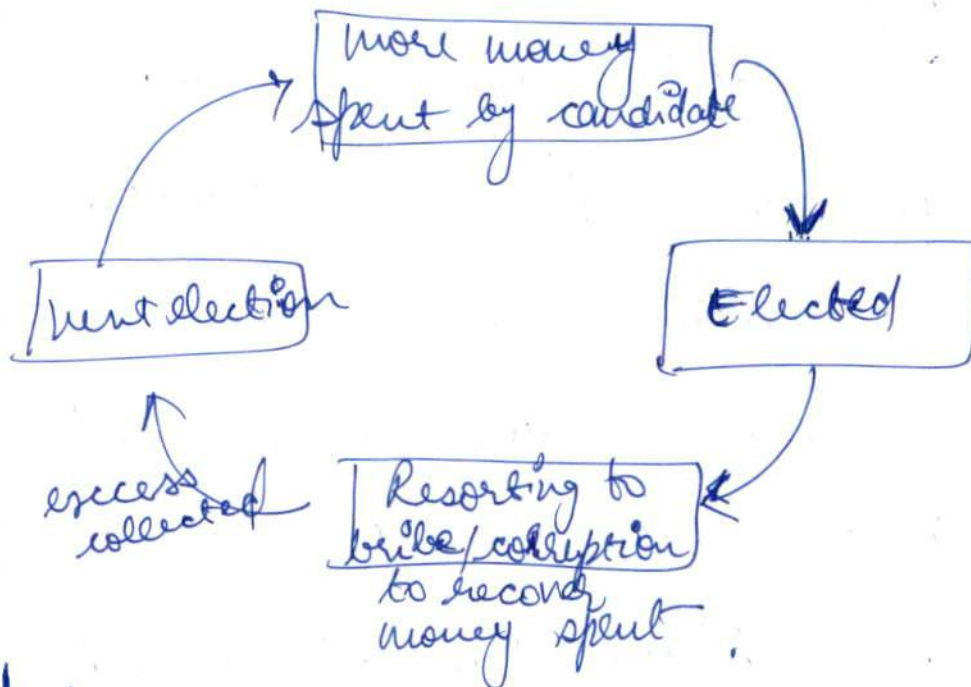 more money
spent by candidate
Elected
Resorting to
bribe/corruption
to recover
money spent
excess
collected
next election